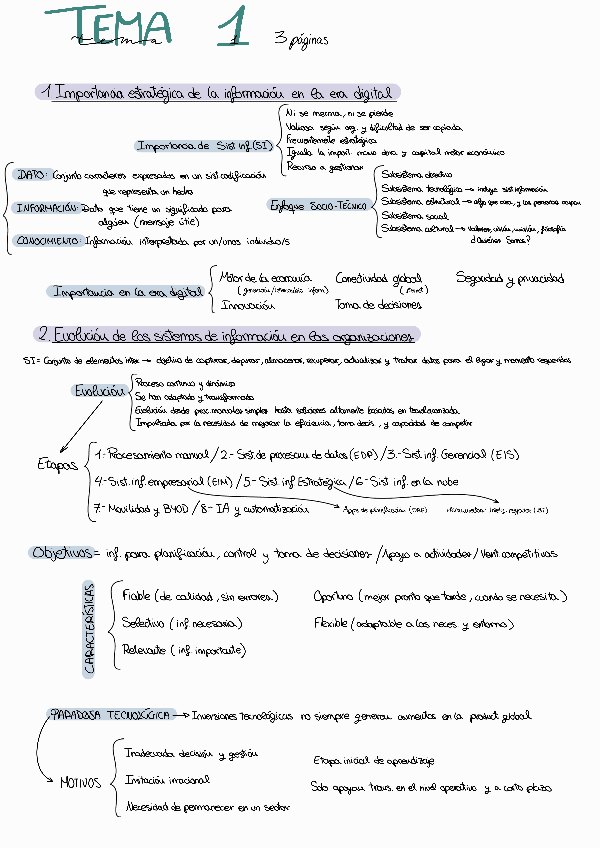 TEMA 1
tema 1
3 páginas
1. Importancia estratégica de la información en la era digital
Importancia de Sist inf (SI)
Ni se merma, ni se pierde
Valiosa según org. y dificultad de ser copiada
Frecuentemente estratégica
Iguala la import. mano obra y capital motor económico
Recurso a gestionar
DATO: Conjunto caracteres expresados en un sist codificación
que representa un hecho
INFORMACIÓN: Dato que tiene un significado para
alguien (mensaje útil)
CONOCIMIENTO: Información interpretada por un/unos individuo/s
Enfoque Socio-Técnico
Subsistema objetivo
Subsistema tecnológico → incluye sist información
Subsistema estructural → algo que crea, y las personas ocupan
Subsistema social
Subsistema cultural → valores, visión, misión, filosofía
¿Quiénes somos?
Importancia en la era digital
Motor de la economía
Conectividad global
Seguridad y privacidad
Innovación
Toma de decisiones
2. Evolución de los sistemas de información en las organizaciones
SI = Conjunto de elementos inter → objetivo de capturar, depurar, almacenar, recuperar, actualizar y tratar datos para el lugar y momento requeridos
Evolución
Proceso continuo y dinámico
Se han adaptado y transformado
Evolución desde proc. manuales simples hasta soluciones altamente basadas en
Impulsada por la necesidad de mejorar la eficiencia, toma decis, y capacidad de competir
Etapas
1.- Procesamiento manual / 2.- Sist de procesam de datos (EDP) / 3.- Sist inf. Gerencial (EIS)
4.- Sist. inf. empresarial (EIM) / 5.- Sist inf Estratégica / 6.- Sist inf. en la nube
7.- Movilidad y BYOD / 8.- IA y automatización
Apps de planificación
Objetivos = inf. para planificación, control y toma de decisiones / Apoyo a actividades / Vent. competitivas
CARACTERÍSTICAS
Fiable (de calidad, sin errores)
Oportuna (mejor pronto que tarde, cuando se necesita)
Selectiva (inf necesaria)
Flexible (adaptable a las neces. y entorno)
Relevante (inf. importante)
PARADOJA TECNOLÓGICA → Inversiones Tecnológicas no siempre generan aumentos en la product global
MOTIVOS
Inadecuada decisión y gestión
Etapa inicial de aprendizaje
Imitación irracional
Solo apoyan trans. en el nivel operativo y a corto plazo
Necesidad de permanecer en un sector